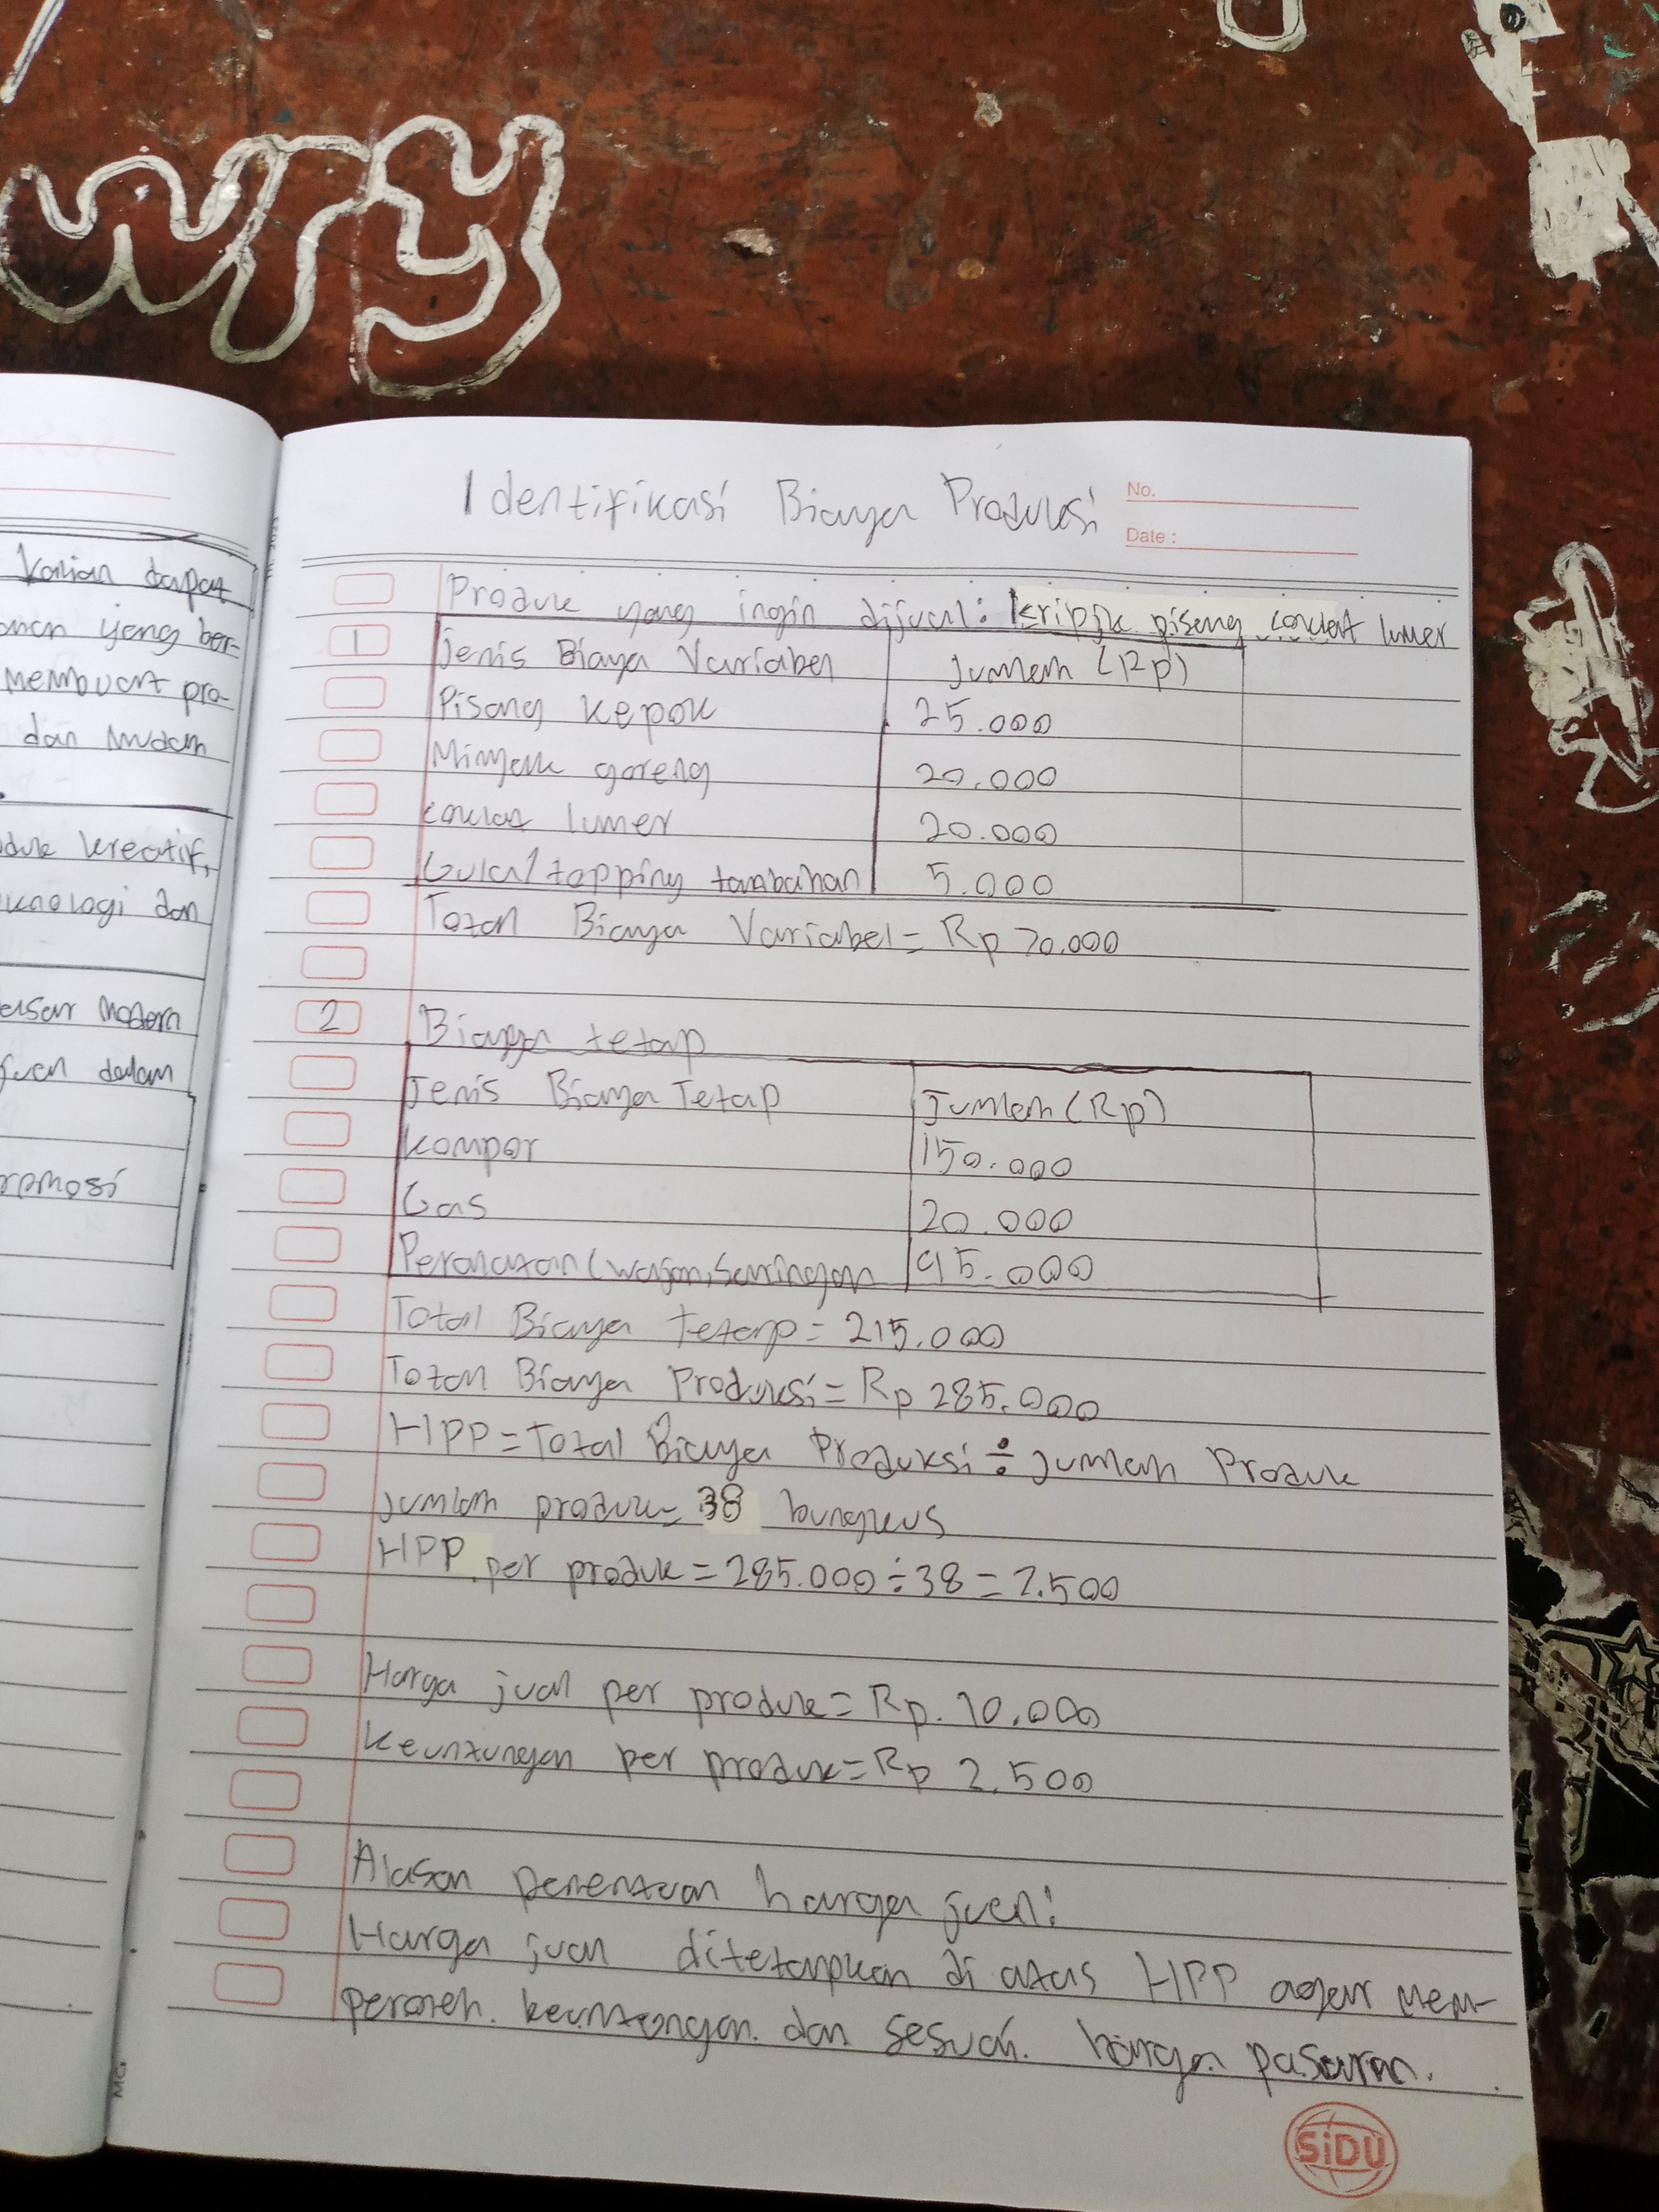 wry
Kalian dapat
aman yang ber-
membuat pro-
dan mudah
duk kreatif,
knologi dan
asar modern
dalam
romosi
Identifikasi Biaya Produksi
No.
Date :
Produk yang ingin dijual: kripik pisang coklat lumer
1 Jenis Biaya Variabel Jumlah (Rp)
Pisang kepok 25.000
Minyak goreng 20.000
coklat lumer 20.000
Gula/topping tambahan 5.000
Total Biaya Variabel = Rp 70.000
2 Biaya tetap
Jenis Biaya Tetap Jumlah (Rp)
Kompor 150.000
Gas 20.000
Peralatan (wajan, saringan 45.000
Total Biaya tetap = 215.000
Total Biaya Produksi = Rp 285.000
HPP = Total Biaya Produksi ÷ Jumlah Produk
Jumlah produk = 38 bungkus
HPP per produk = 285.000 ÷ 38 = 7.500
Harga jual per produk = Rp. 10.000
Keuntungan per produk = Rp 2.500
Alasan penentuan harga jual:
Harga jual ditetapkan di atas HPP agar mem-
peroleh keuntungan dan sesuai harga pasaran.
SiDU